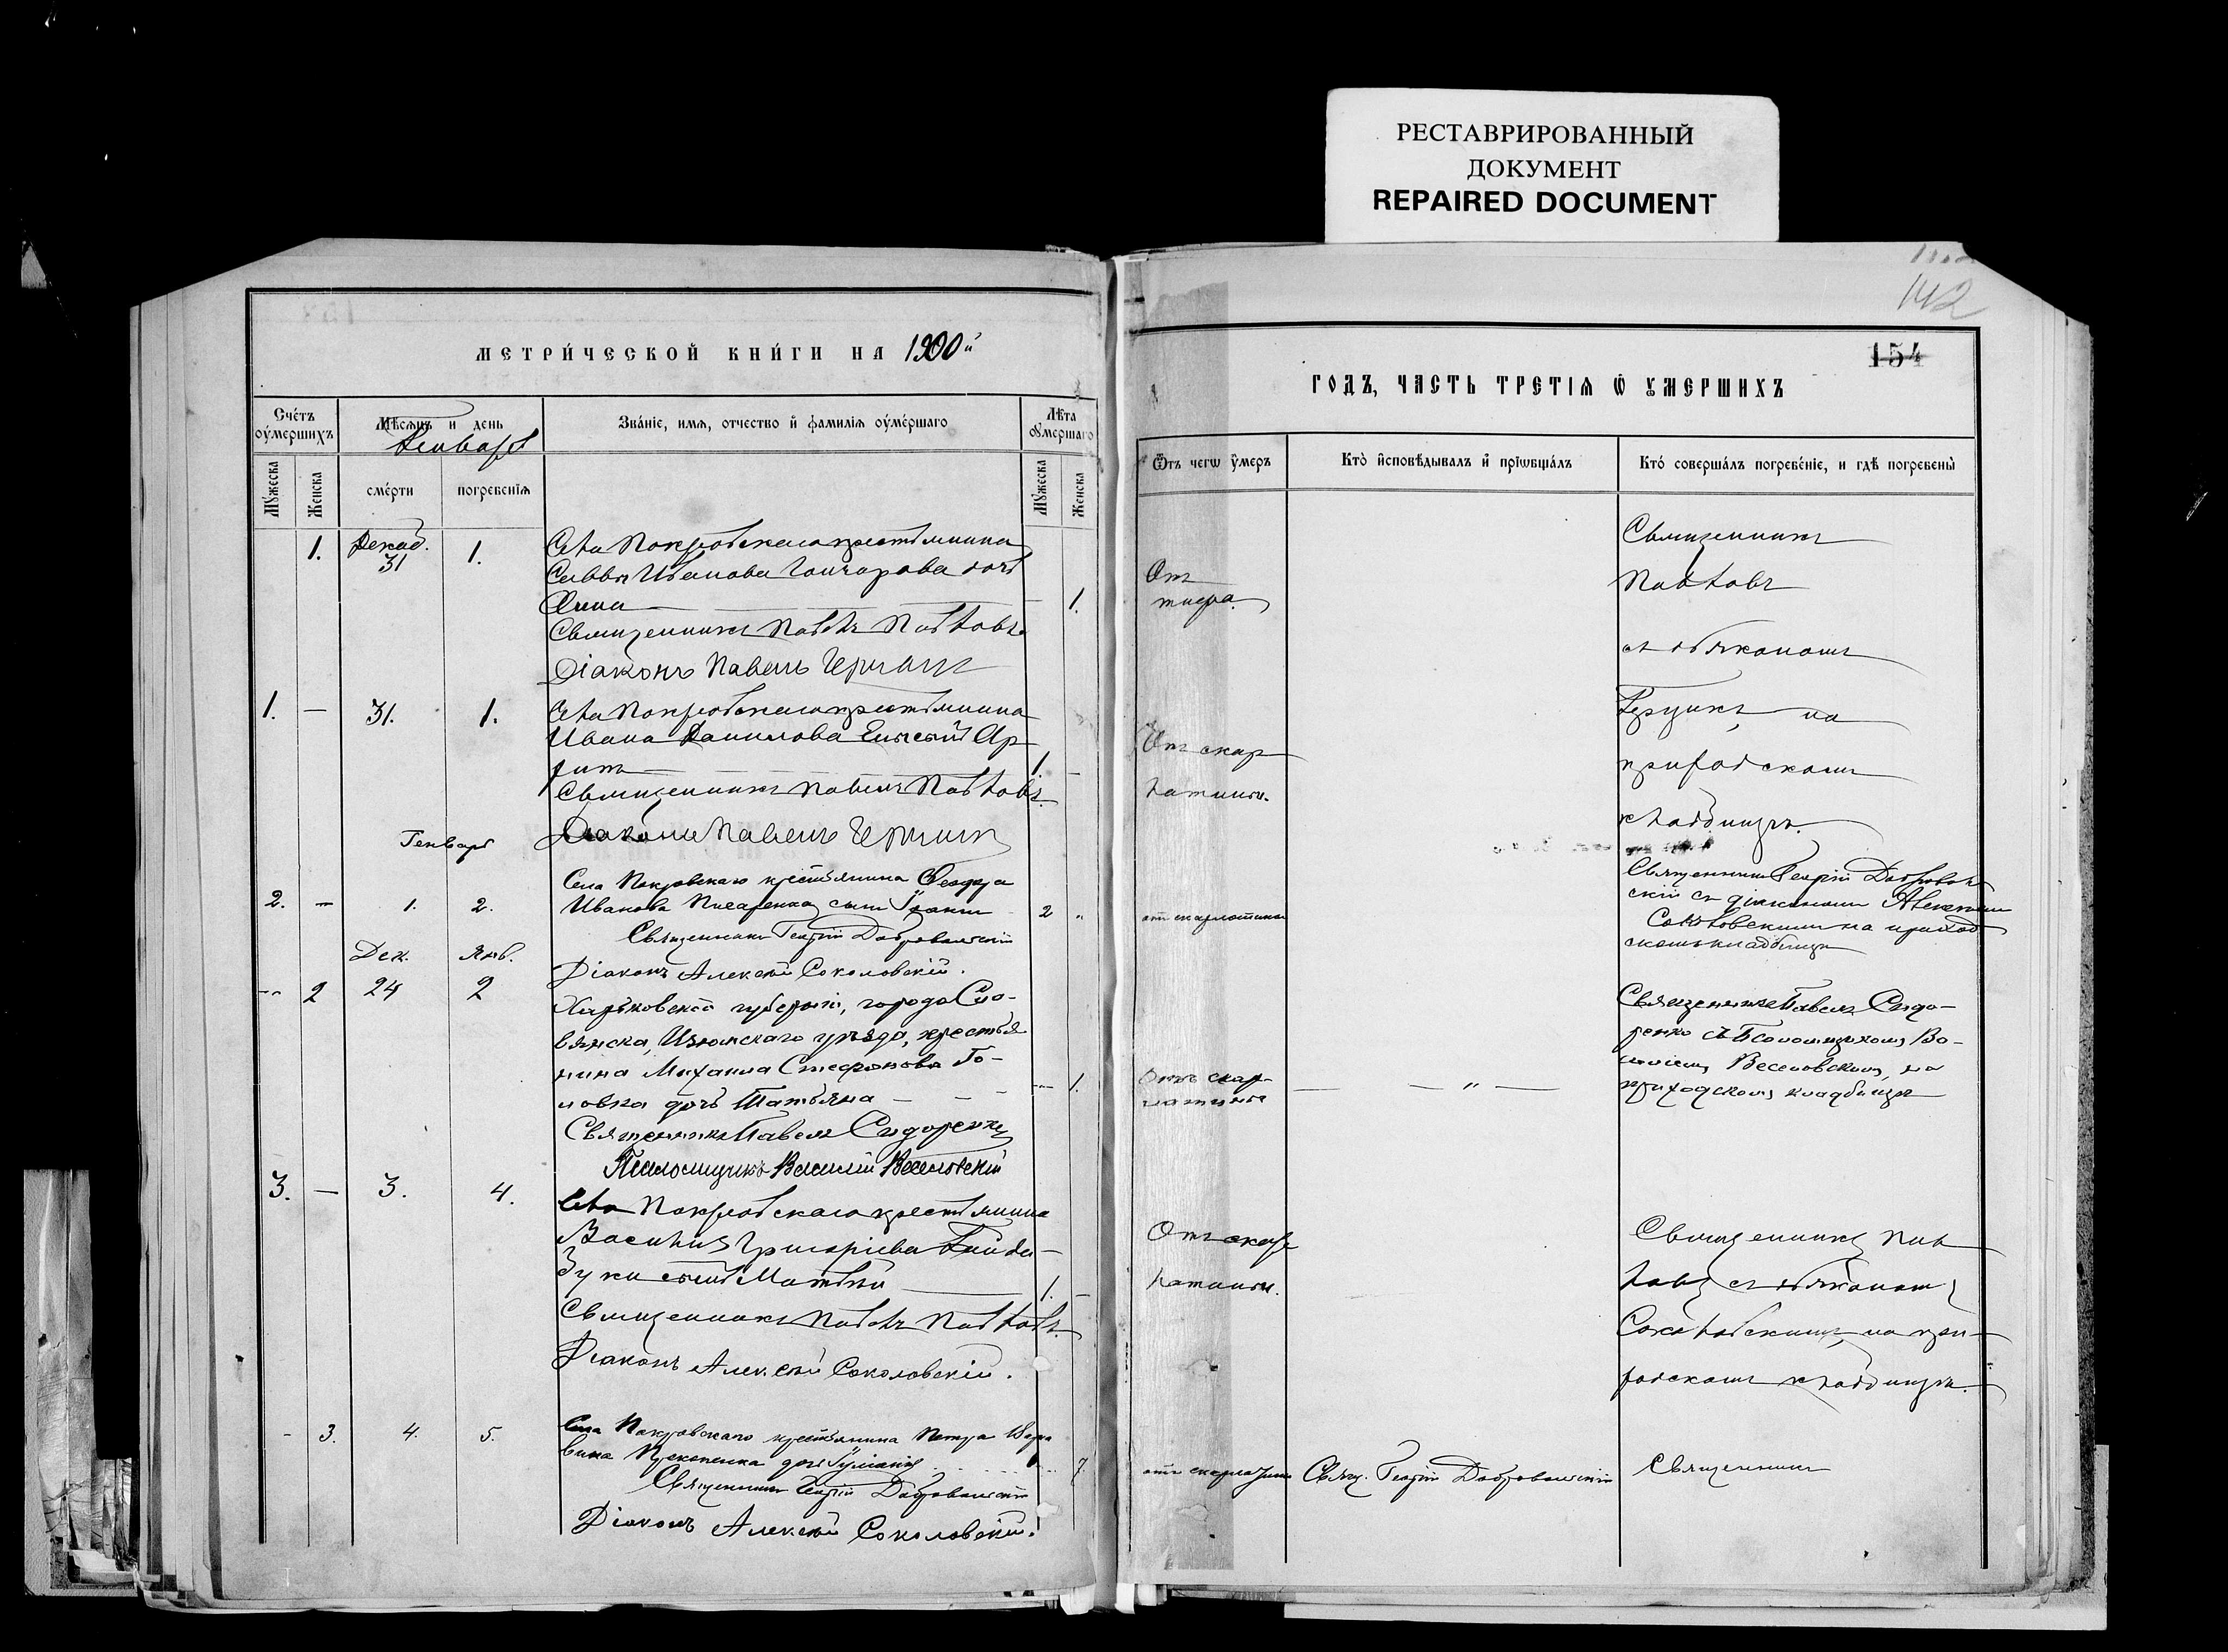 РЕСТАВРИРОВАННЫЙ
ДОКУМЕНТ
REPAIRED DOCUMENT
142
154
МЕТРИ́ЧЕСКОЙ КНИ́ГИ НА 1900й
ГОДЪ, ЧАСТЬ ТРЕТІѦ Ѿ УМЕРШИХЪ
Сче́тъ оу҆ме́ршихъ
Мѣсѧцъ и день
Январь
Зва́нїе, имѧ, отчество и҆ фамилїѧ оу҆ме́ршаго
Лѣта оу҆мершаго
Мꙋ́жеска
Женска
сме́рти
погребенїѧ
Мꙋ́жеска
Женска
Ѿъ чегѡ ᲂу҆меръ
Кто̀ и҆сповѣ́дывалъ и҆ прїѡбща́лъ
Кто́ соверша́лъ погребе́нїе, и гдѣ̀ погребены̀
1. Декаб. 31 1.
Села Покровскаго крестьянина
Саввы Иванова Гончарова дочь
Анна 1.
Священникъ Павелъ Павловъ
Діаконъ Павелъ
От
тифа.
Священникъ
Павловъ
съ діякономъ
на
приходскомъ
кладбищѣ.
1. — 31. 1.
Села Покровскаго крестьянина
Ивана Данилова
1. —
Священникъ Павелъ Павловъ.
Діаконъ Павелъ
От скар
латины.
Генварь
2. — 1. 2.
Села Покровскаго крестьянина Ѳеодора
Иванова Писаренка сынъ
2 "
Священникъ Георгій Добровольскій
Діаконъ Алексѣй Соколовскій.
отъ скарлатины
Священникъ Георгій Добровольскій съ діакономъ Алексѣемъ
Соколовскимъ на приход
скомъ кладбищѣ
Дек. Янв.
-- 2 24 2
Харьковской губерніи, города Сло-
вянска, Изюмскаго уѣзда, крестья
нина Михаила Стефанова Го-
ловка дочь Татьяна — — —
— 1.
Священникъ Павелъ Сидоренко
Псаломщикъ Василій Веселовскій
Отъ скар-
латины
— — " —
Священникъ Павелъ Сидо-
ренко съ Псаломщикомъ Ва-
силіемъ Веселовскимъ, на
приходскомъ кладбищѣ
3. — 3. 4.
Села Покровскаго крестьянина
Василія Григоріева Гайда-
буки сынъ Матвѣй
1. —
Священникъ Павелъ Павловъ.
Діаконъ Алексѣй Соколовскій.
От скар
латины.
Священникъ Пав
ловъ съ діякономъ
Соколовскимъ, на при-
ходскомъ кладбищѣ.
- 3. 4. 5.
Села Покровскаго крестьянина Петра
дочь Іуліанія
7.
Священникъ Георгій Добровольскій
Діаконъ Алексѣй Соколовскій.
отъ скарлатины
Свящ. Георгій Добровольскій
Священникъ